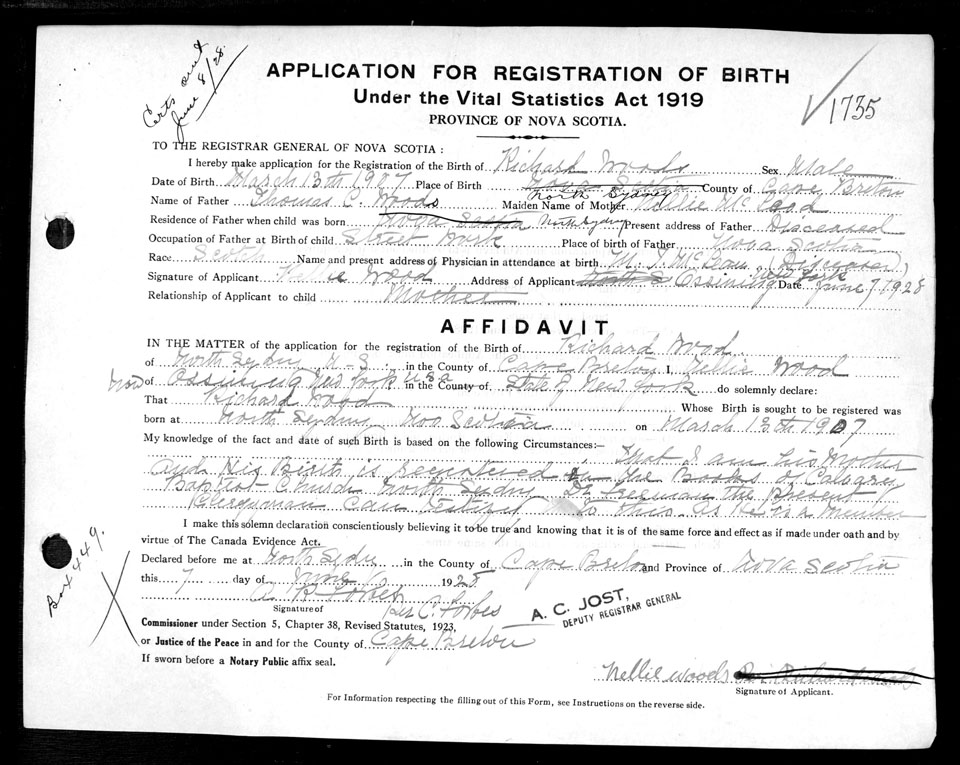 Certs sent
June 8/28.
APPLICATION FOR REGISTRATION OF BIRTH
Under the Vital Statistics Act 1919
PROVINCE OF NOVA SCOTIA.
√ 1735
TO THE REGISTRAR GENERAL OF NOVA SCOTIA :
I hereby make application for the Registration of the Birth of Richard Woods Sex Male
Date of Birth March 13th 1907 Place of Birth North Sydney County of Cape Breton
Name of Father Thomas C. Woods Maiden Name of Mother Nellie McLeod
Residence of Father when child was born Nova Scotia North Sydney Present address of Father Disceased
Occupation of Father at Birth of child Street Work Place of birth of Father Nova Scotia
Race Scotch Name and present address of Physician in attendance at birth M. T. McLean (Disceased)
Signature of Applicant Nellie Wood Address of Applicant Ossining New York Date June 7 1928
Relationship of Applicant to child Mother
AFFIDAVIT
IN THE MATTER of the application for the registration of the Birth of Richard Wood
of North Sydny N. S. in the County of Cape Breton I, Nellie Wood
now of Ossining New York USA in the County of State of New York do solemnly declare:
That Richard Wood Whose Birth is sought to be registered was
born at North Sydny Nov Scotia on March 13th 1907
My knowledge of the fact and date of such Birth is based on the following Circumstances:– That I am his Mother
and His Birth is Registered in the Books of Calvary
Baptist Church North Sydny Dr Freeman the Present
Clergyman can testify to this as he is a member
I make this solemn declaration conscientiously believing it to be true and knowing that it is of the same force and effect as if made under oath and by
virtue of The Canada Evidence Act.
Declared before me at North Sydny in the County of Cape Breton and Province of Nova Scotia
this 7 day of June 1928
A R Forbes
Signature of
A. C. JOST,
DEPUTY REGISTRAR GENERAL
Commissioner under Section 5, Chapter 38, Revised Statutes, 1923,
or Justice of the Peace in and for the County of Cape Breton
If sworn before a Notary Public affix seal.
Nellie Woods
Signature of Applicant.
For Information respecting the filling out of this Form, see Instructions on the reverse side.